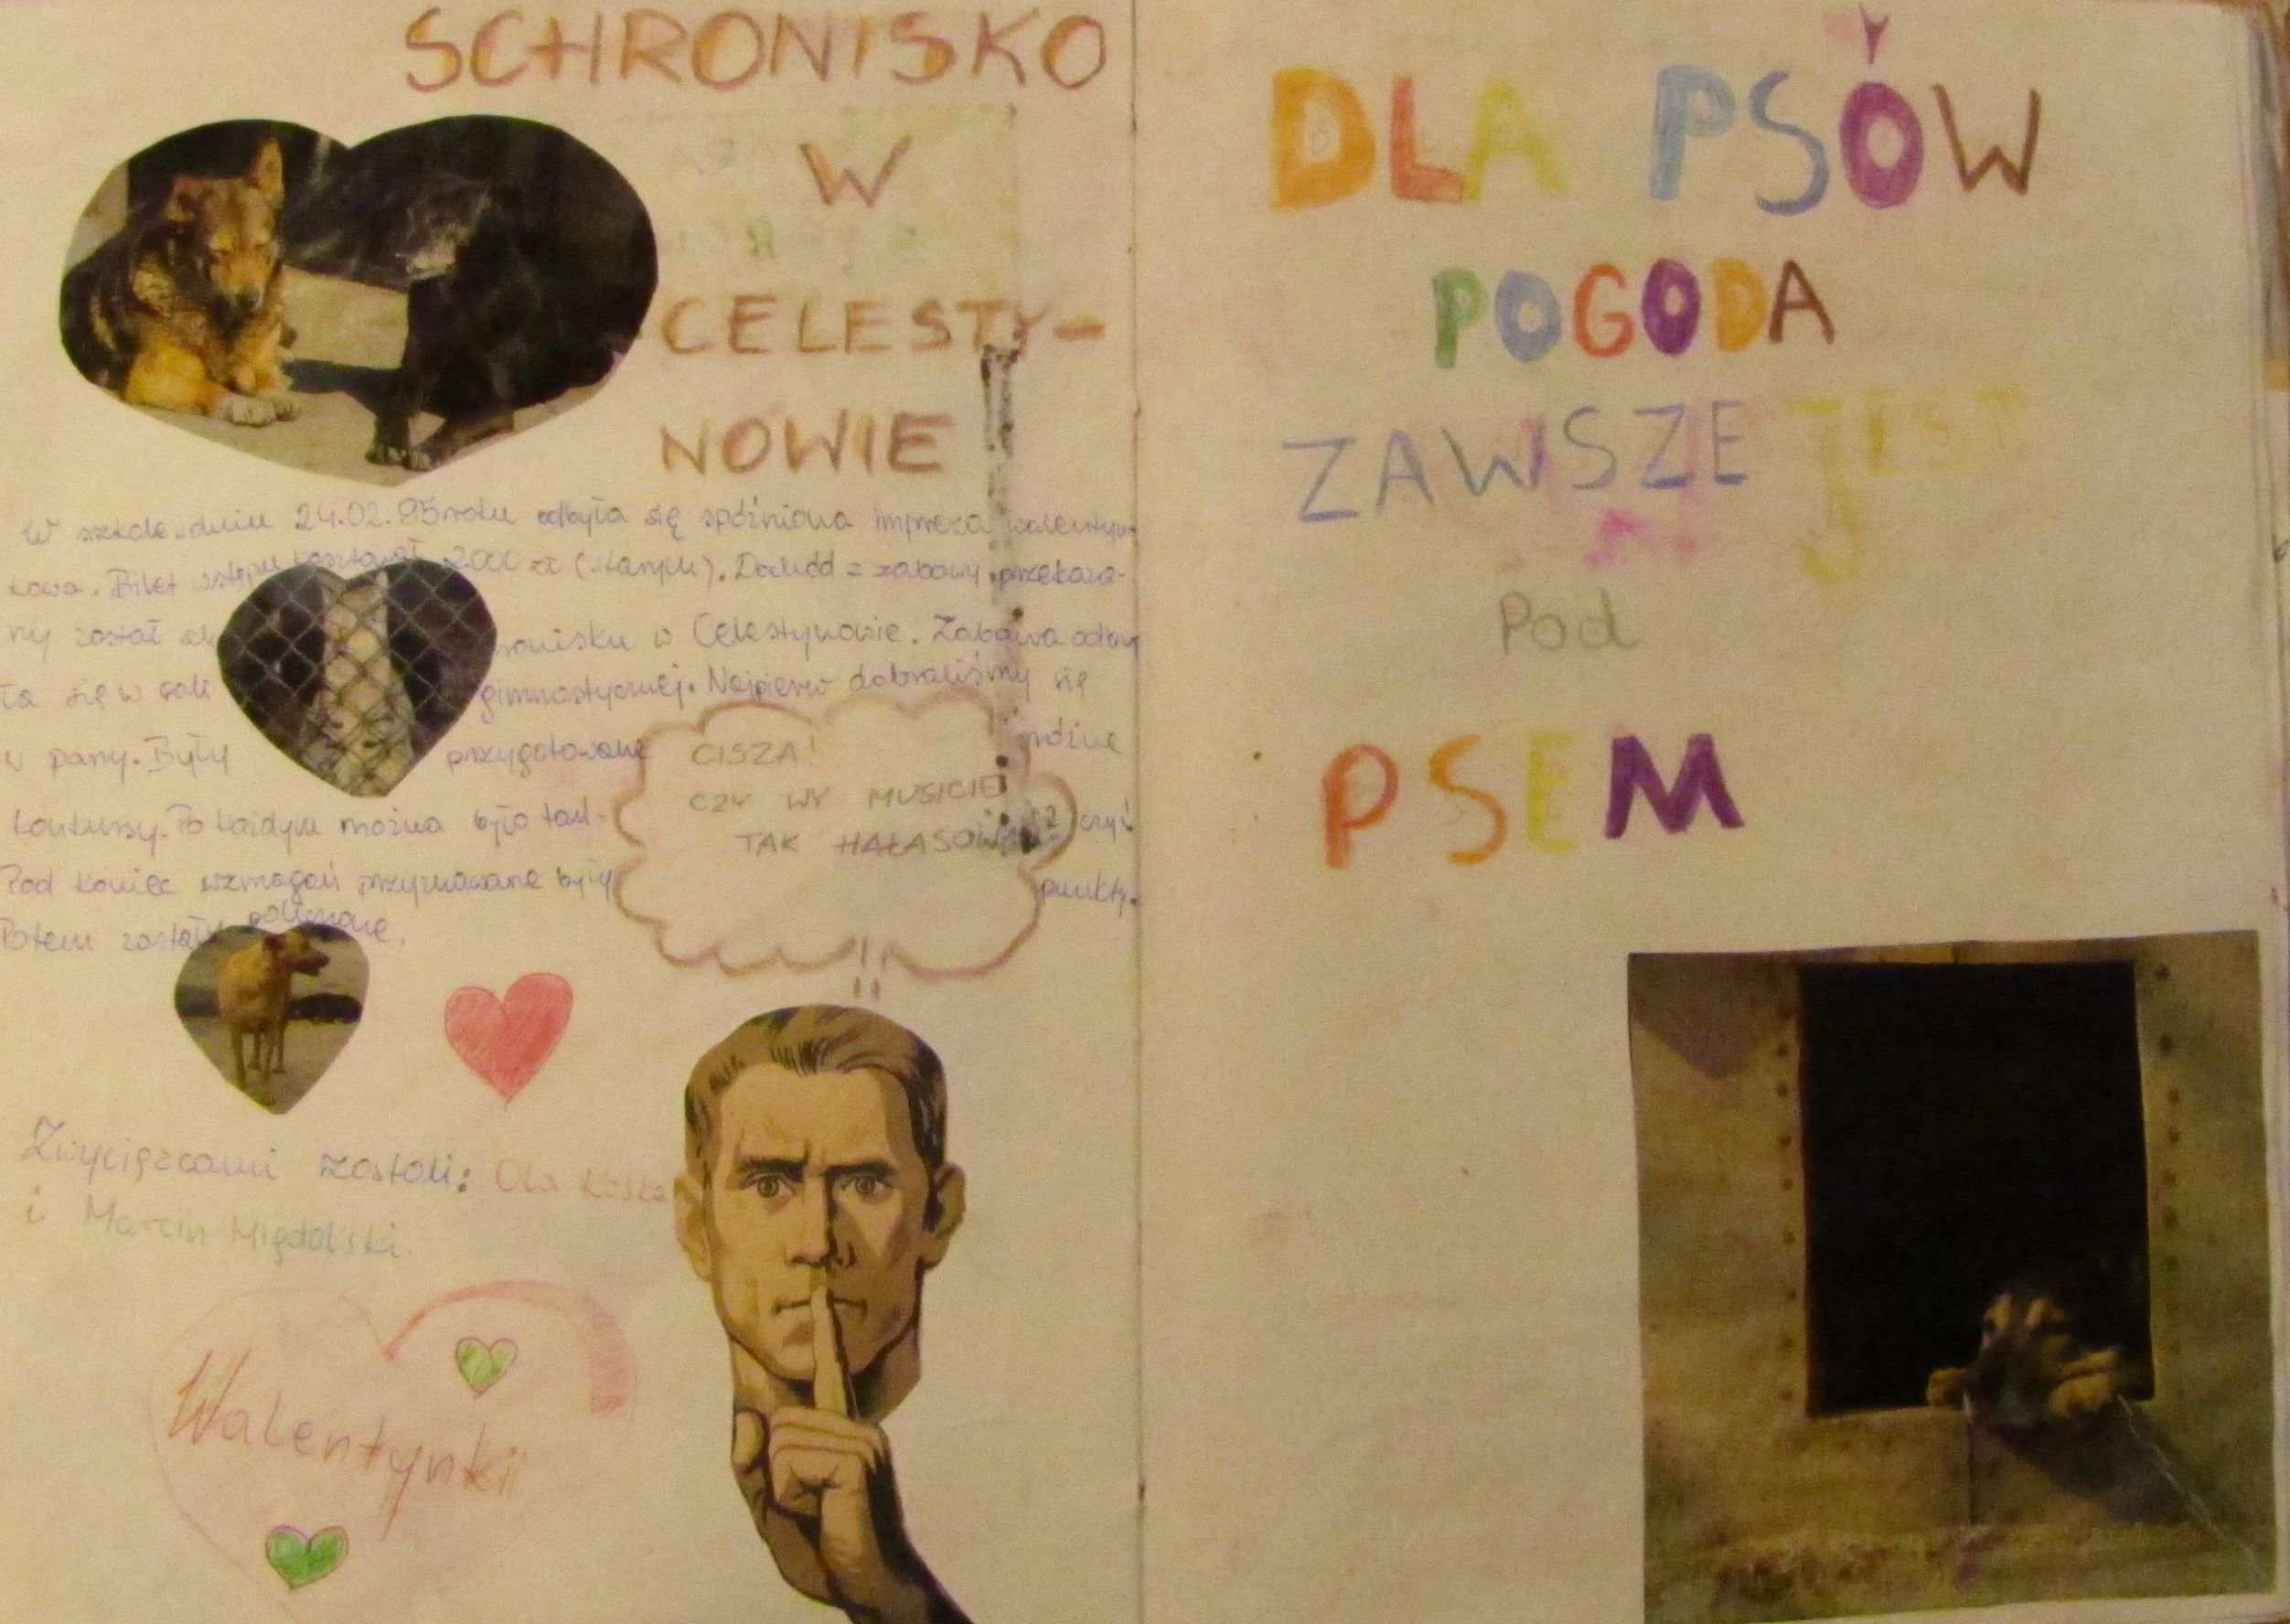 SCHRONISKO
W
CELESTY-
NOWIE
W szkole w dniu 24.02.95 roku odbyła się spóźniona impreza walentyn-
kowa. Bilet wstępu kosztował 2000 zł (starych). Dochód z zabawy przekaza-
ny został schronisku w Celestynowie. Zabawa odby
ła się w sali gimnastycznej. Najpierw dobraliśmy się
w pary. Były przygotowane różne
konkursy. Po każdym można było tań- czyć
Pod koniec wzmagań przyznawane były punkty.
Potem zostały policzone.
CISZA!
CZY WY MUSICIE
TAK HAŁASOWAĆ?
Zwycięzcami zostali: Ola Kośka
i Marcin Migdalski.
Walentynki
DLA PSÓW
POGODA
ZAWSZE JEST
Pod
PSEM